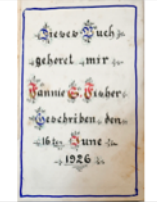 Dieses Buch
gehoret mir
Fannie S. Fisher
Geschriben den
16ten June
1926